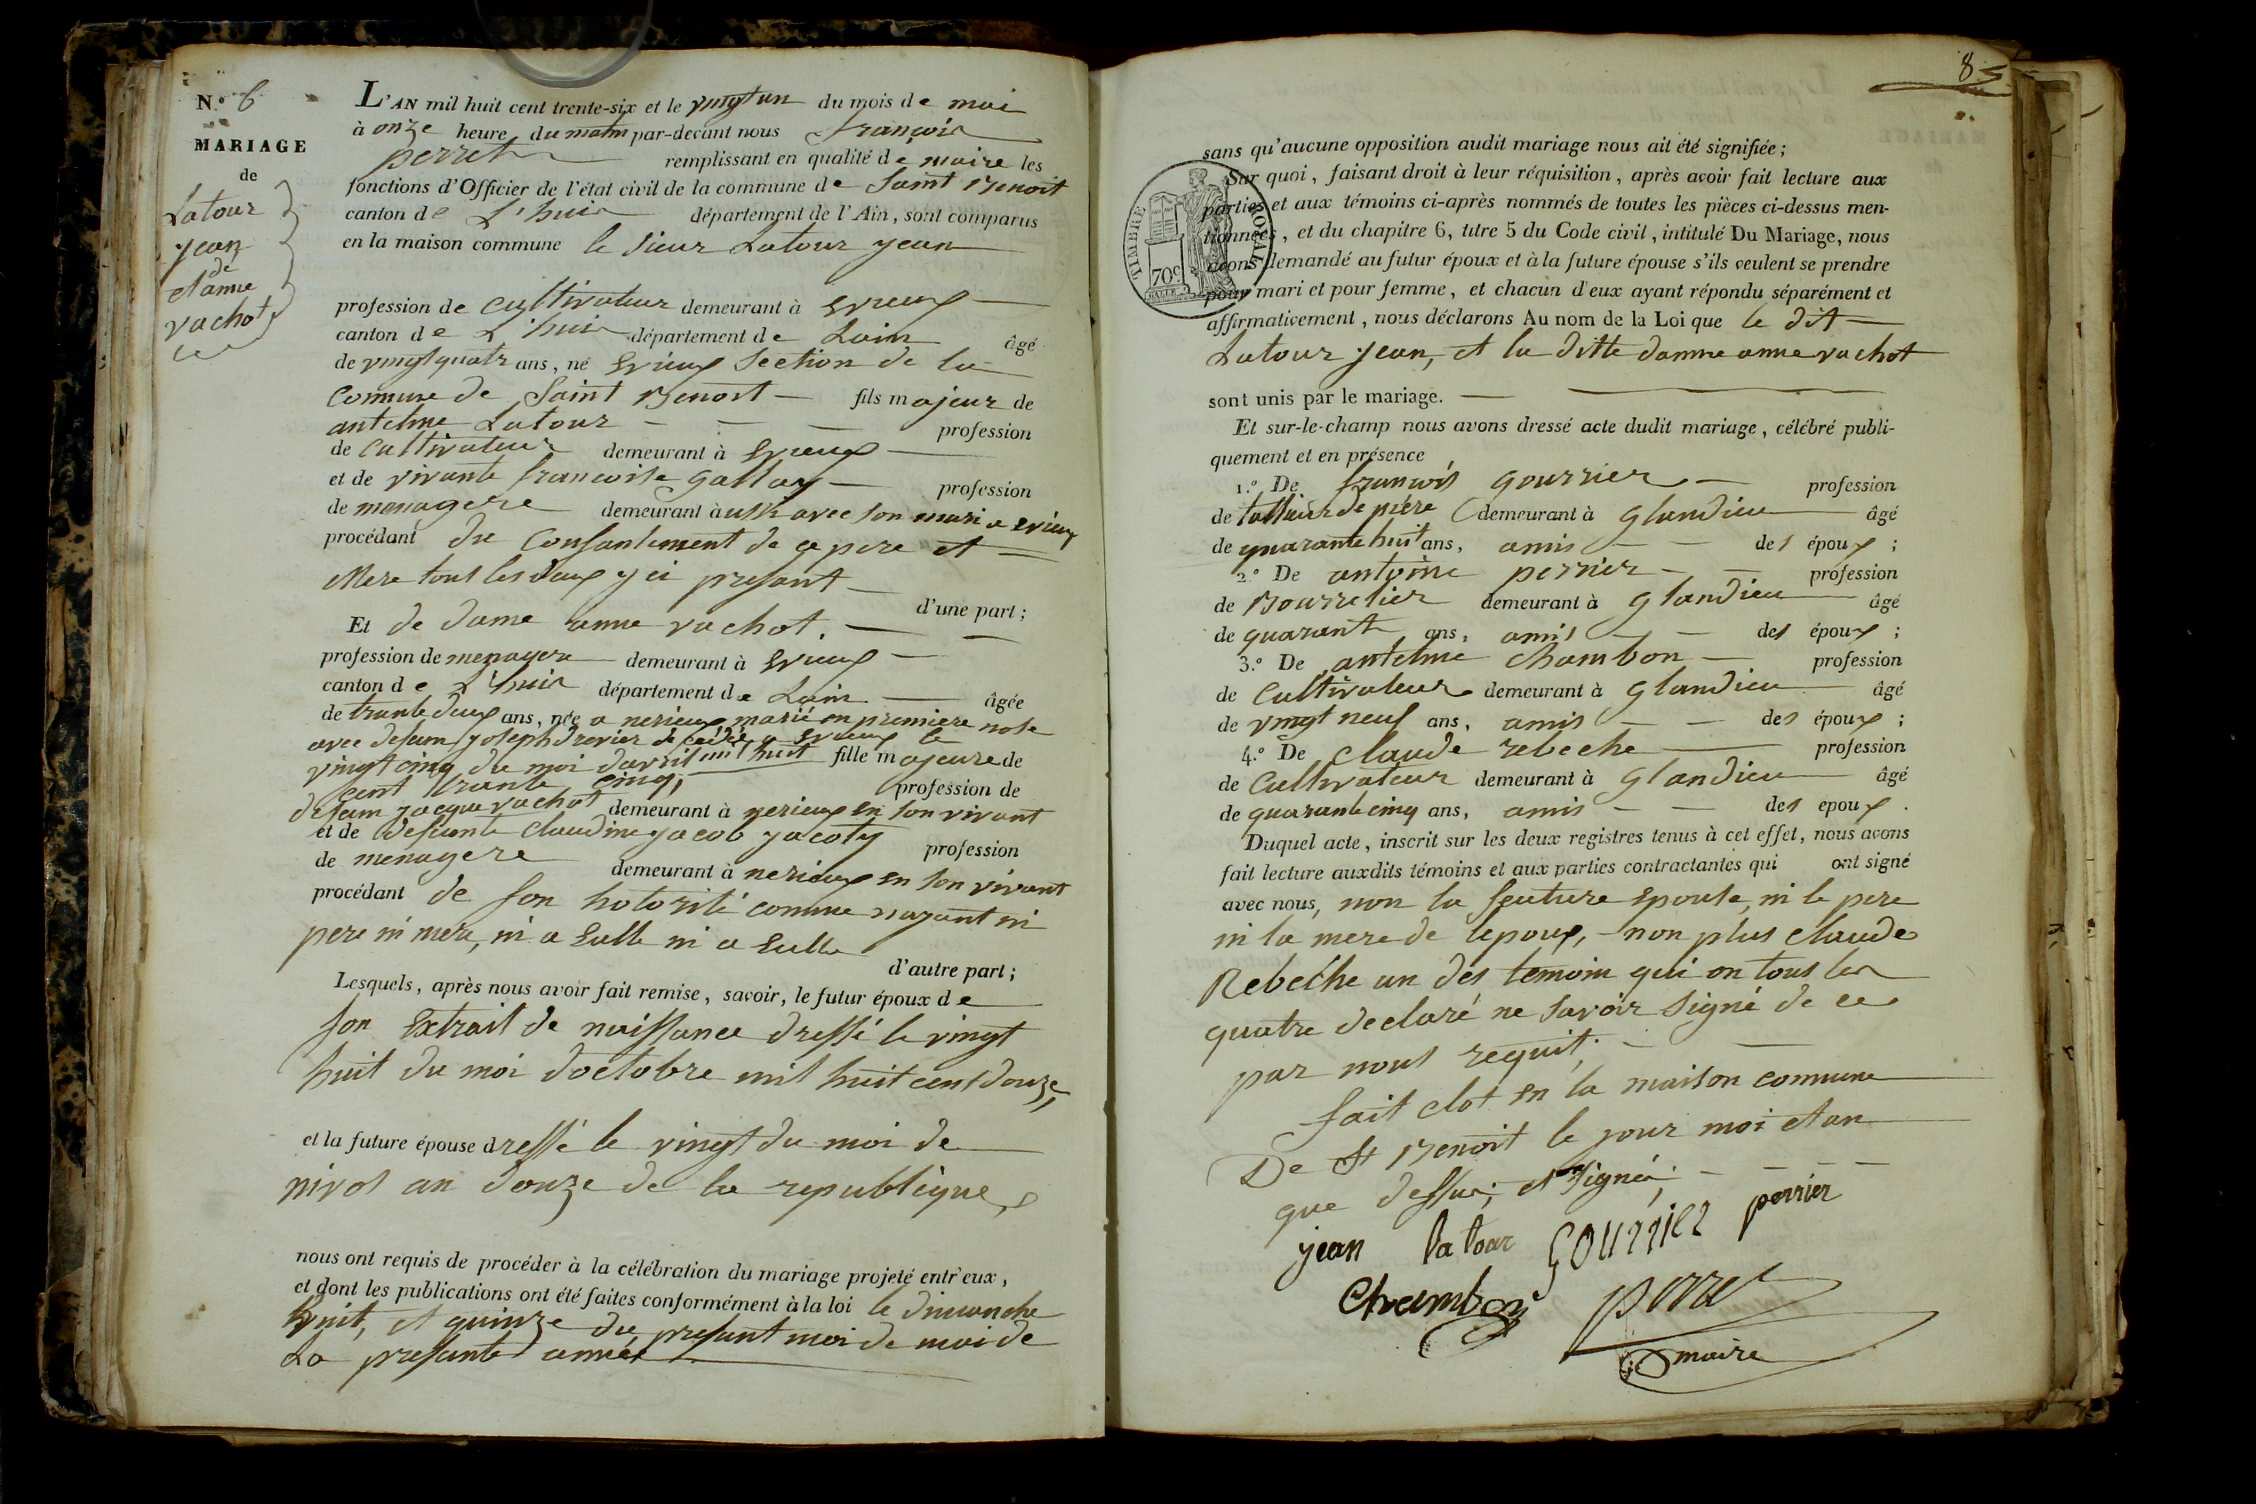 N.º 6
MARIAGE
de
Latour
jean
de
et anne
vachot
L'AN mil huit cent trente-six et le vingt un du mois de mai
à onze heure du matin par-devant nous françois
perret remplissant en qualité de maire les
fonctions d'Officier de l'état civil de la commune de Saint Benoit
canton de L'huis département de l'Ain, sont comparus
en la maison commune le sieur Latour jean
profession de cultivateur demeurant à Evieux
canton de L'huis département de Lain âgé
de vingt quatr ans, né Evieux Section de la
Commune de Saint Benoit fils majeur de
antelme Latour profession
de Cultivateur demeurant à Evieux
et de vivante francoise gallay profession
de menagere demeurant à usst avec son mari a Evieux
procédant du Consantement de ce pere et
Mere tous les deux y ci presant
d'une part ;
Et de dame anne vachot.
profession de menagere demeurant à Evieux
canton de L'huis département de Lain âgée
de trante deux ans, née a nerieux marié en premiere nose
avec defeun joseph drevier décédé a Evieux le
vingt cinq du moi davril mil huit fille majeure de
cent trante cinq,
profession de
defeun jacque vachot demeurant à nerieux en son vivant
et de defeunte Claudine jacob jacoty
de menagere profession
demeurant à nerieux en son vivant
procédant de son hotorité comme nayant ni
pere ni mere, ni a Eulle ni a Eulle
d'autre part ;
Lesquels, après nous avoir fait remise, savoir, le futur époux de
son Extrait de naissance dressé le vingt
huit du moi doctobre mil huit cent douze,
et la future épouse dressé le vingt du moi de
nivos an douze de la republique,
nous ont requis de procéder à la célébration du mariage projeté entr'eux,
et dont les publications ont été faites conformément à la loi le dimanche
huit, et quinze du presant moi de mai de
La presante année
85
sans qu'aucune opposition audit mariage nous ait été signifiée ;
Sur quoi, faisant droit à leur réquisition, après avoir fait lecture aux
parties et aux témoins ci-après nommés de toutes les pièces ci-dessus men-
tionnées, et du chapitre 6, titre 5 du Code civil, intitulé Du Mariage, nous
avons demandé au futur époux et à la future épouse s'ils veulent se prendre
pour mari et pour femme, et chacun d'eux ayant répondu séparément et
affirmativement, nous déclarons Au nom de la Loi que le dit
Latour jean, et la ditte damne anne vachot
sont unis par le mariage.
Et sur-le-champ nous avons dressé acte dudit mariage, célébré publi-
quement et en présence
1.º De francois gourrier profession
de tallieur de piére demeurant à glandieu âgé
de quarante huit ans, amis des époux ;
2.º De antoine perrier profession
de Bourrelier demeurant à glandieu âgé
de quarant ans, amis des époux ;
3.º De antelme chambon profession
de Cultivateur demeurant à glandieu âgé
de vingt neuf ans, amis des époux ;
4.º De Claude rebeche profession
de Cultivateur demeurant à glandieu âgé
de quarante cinq ans, amis des epoux.
Duquel acte, inscrit sur les deux registres tenus à cet effet, nous avons
fait lecture auxdits témoins et aux parties contractantes qui ont signé
avec nous, non la feuture Epouse, ni le pere
ni la mere de lepoux, non plus Claude
Rebeche un des temoin qui on tous les
quatre declaré ne savoir signé de ce
par nous requit,
fait clot en la maison commune
De St Benoit le jour moi et an
que dessus, et signée,
jean latour gourrier perrier
Chambon perret
maire
TIMBRE ROYAL
70c